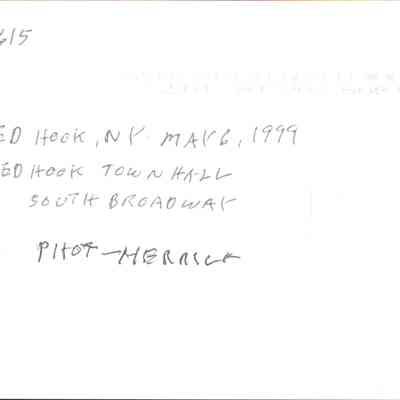 615
ED HOOK, NY. MAY 6, 1999
ED HOOK TOWN HALL
SOUTH BROADWAY
PHOT-HERRICK